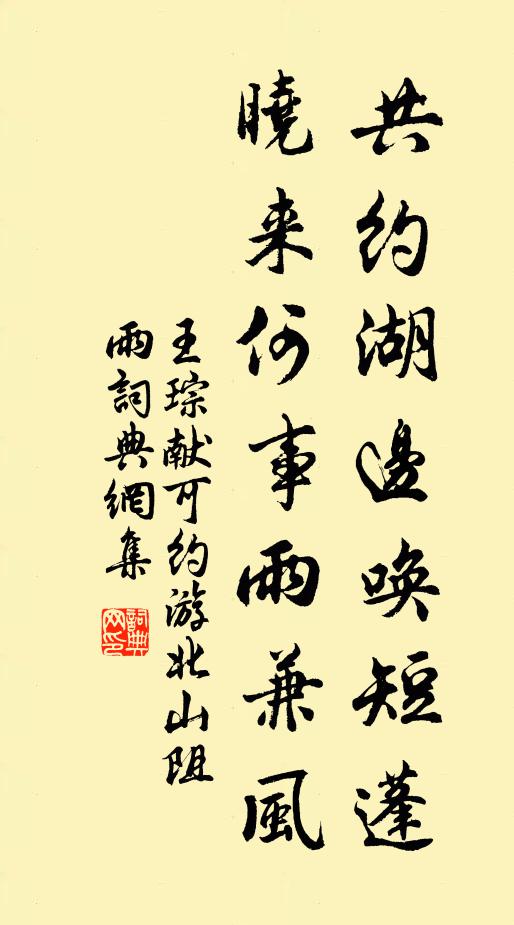 共约湖邊唤短蓬
曉来何事雨兼風
王琮献可约游北山阻
雨詞典網集
詞典网印